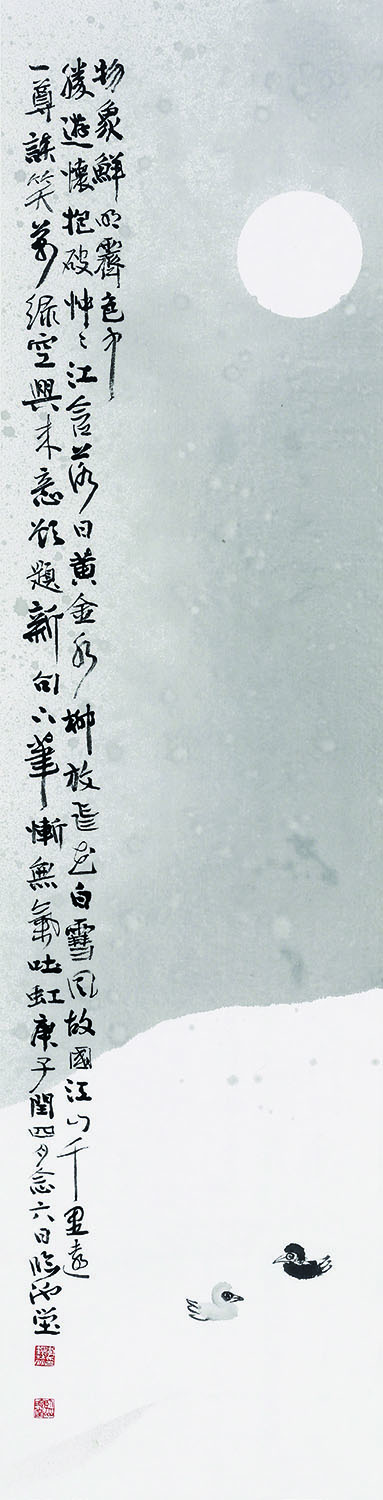 物象鮮明霽色中
勝遊懷抱破忡〻江含落日黃金水柳放飛花白雪風故國江山千里遠
一尊談笑萬緣空興來意欲題新句下筆慚無氣吐虹庚子閏四月念六日臨池堂